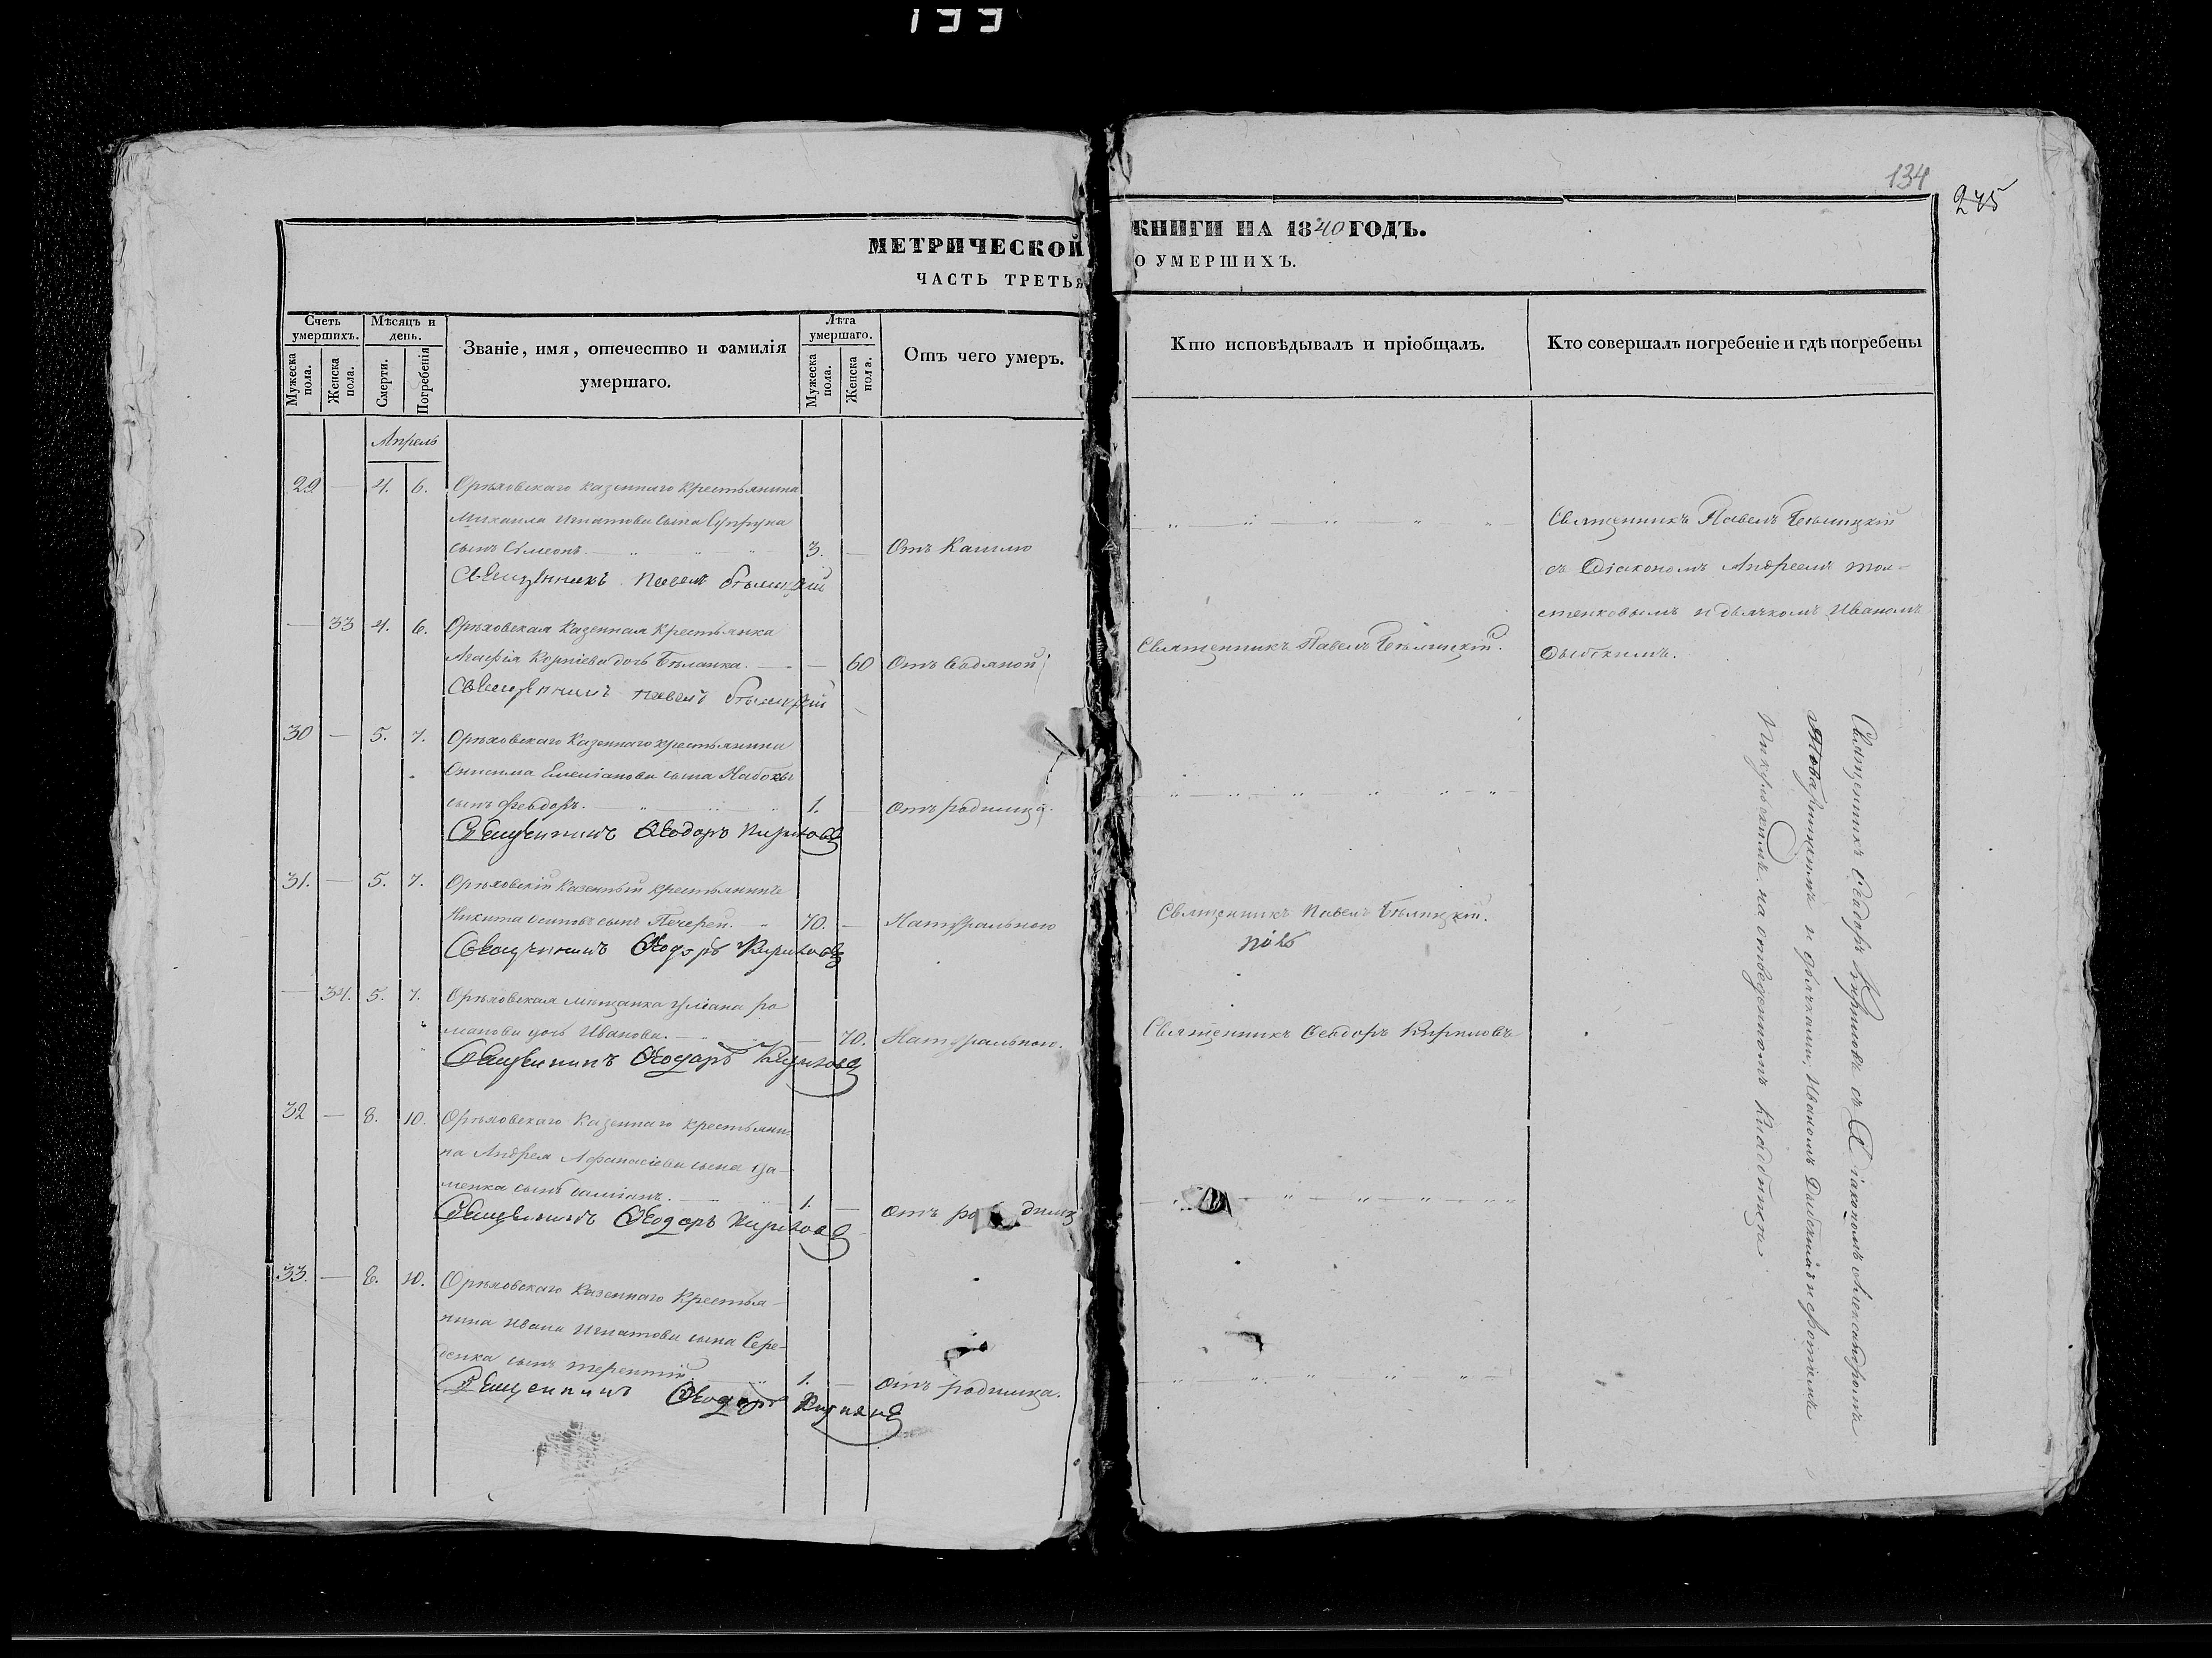 133
134
275
МЕТРИЧЕСКОЙ КНИГИ НА 1840 ГОДЪ.
ЧАСТЬ ТРЕТЬЯ О УМЕРШИХЪ.
Счетъ умершихъ.
Мужеска пола.
Женска пола.
Мѣсяцъ и день.
Смерти.
Погребенія
Званіе, имя, отечество и фамилія умершаго.
Лѣта умершаго.
Мужеска пола.
Женска пола.
Отъ чего умеръ.
Кто исповѣдывалъ и пріобщалъ.
Кто совершалъ погребеніе и гдѣ погребены
Апрель
29 — 4. 6. Орѣховскаго казеннаго крестьянина
Михаила Игнатова сына Супруна
сынъ Симеонъ. 3. — Отъ Кашлю
Священникъ Павелъ Бѣлицкій
— 33 4. 6. Орѣховская Казенная крестьянка
Агафія Корніева дочь Бѣланка. — 60 Отъ водяной
Священникъ Павелъ Бѣлицкій.
Священникъ Павелъ Бѣлицкій
30 — 5. 7. Орѣховскаго Казеннаго крестьянина
Онисима Емеліанова сына Набоки
сынъ Феодоръ. 1. — отъ родимца.
Священникъ Феодоръ Кириловъ
31. — 5. 7. Орѣховскій казенный крестьянинъ
Никита Осиповъ сынъ Печерей. 70. — Натурального
Священникъ Павелъ Бѣлицкій.
Священникъ Феодоръ Кириловъ
— 34. 5. 7. Орѣховская мѣщанка Уліана Ро
манова дочь Иванова. — 70. Натуральною.
Священникъ Феодоръ Кириловъ
Священникъ Феодоръ Кириловъ
32 — 8. 10. Орѣховскаго Казеннаго крестьяни
на Андрея Афанасіева сына
менка сынъ 1. — Отъ родимц
Священникъ Феодоръ Кириловъ
33. — 8. 10. Орѣховскаго Казеннаго Крестья
нина Ивана Игнатова сына Сере-
сынъ Терентій 1. — Отъ родимца.
Священникъ Феодоръ Кириловъ
Священникъ Павелъ Бѣлицкій
съ Діакономъ Андреемъ Тол-
стенковымъ и дьячкомъ Иваномъ
Священникъ Феодоръ Кириловъ съ Діакономъ Александромъ
Товарницкимъ и дьячками, Иваномъ и Фотіемъ
на отведенномъ Кладбищѣ